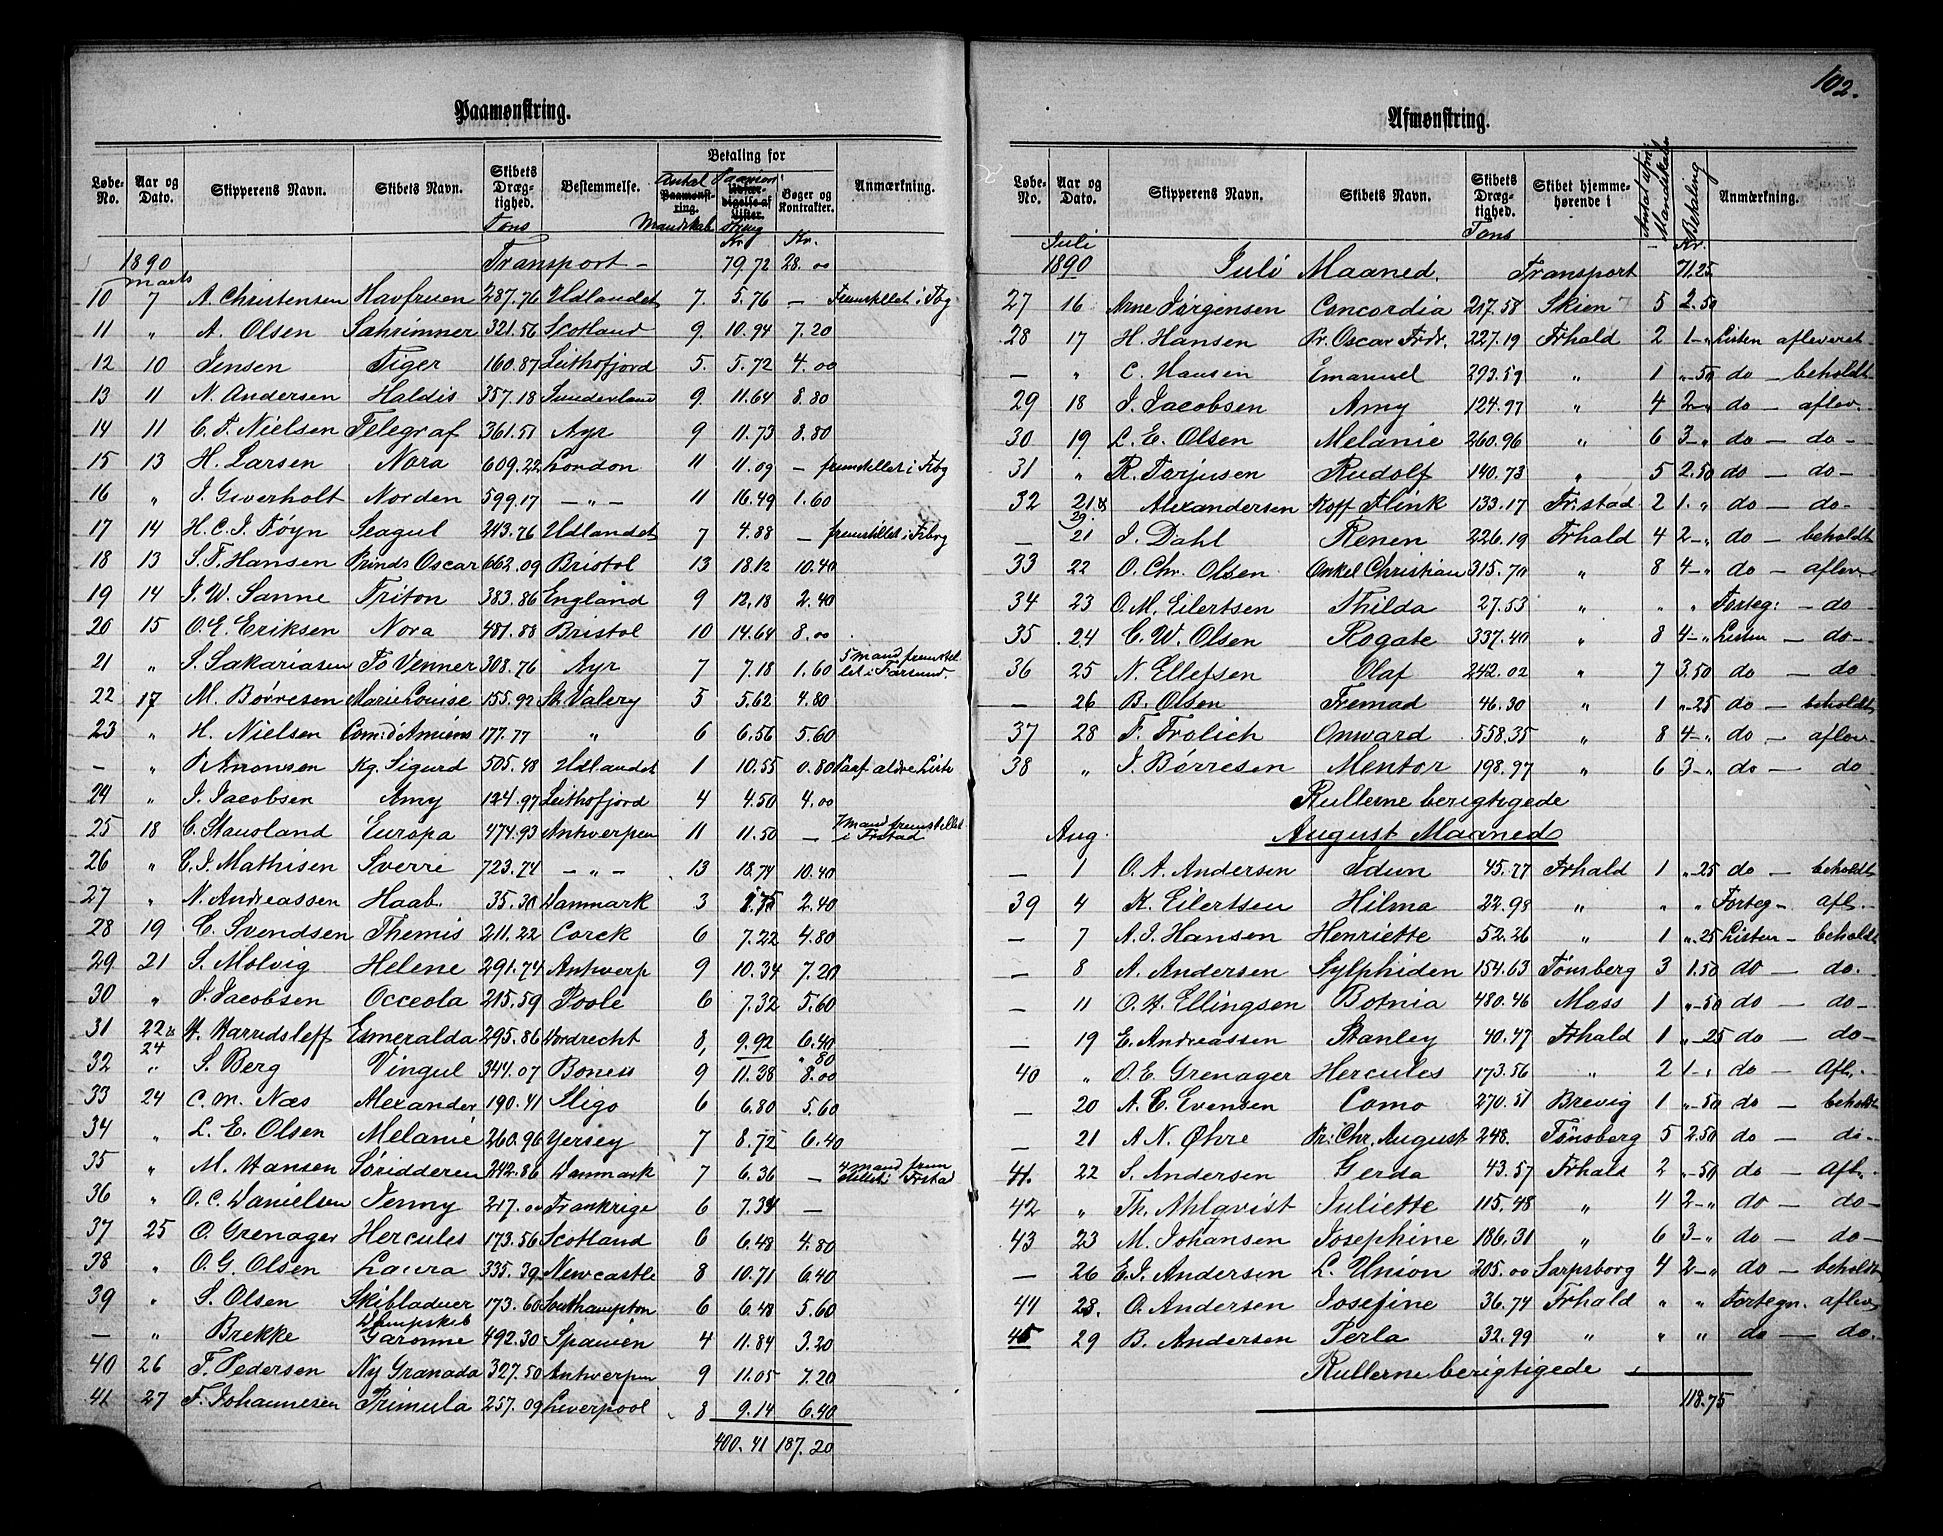 Paamønstring.
Løbe-No. Aar og Dato. Skipperens Navn. Skibets Navn. Skibets Dræg-tighed. Tons Bestemmelse. Antal Mandskab. Betaling for Bøger og Kontrakter. Anmærkning.
Kr. Kr.
1890 Transport - 79.72 28.00
marts
10 7 A. Christensen Havfruen 287.76 Udlandet 7. 5.76 — Fremstillet i Fbg
11 " A. Olsen Sahrimner 321.56 Scotland 9. 10.94 7.20
12 10 Jensen Tiger 160.87 Leithofjord 5. 5.72 4.00
13 11 N. Andersen Haldis 357.18 Sunderland 9. 11.64 8.80
14 11 C. F. Nielsen Telegraf 361.51 Ayr 9 11.73 8.80
15 13 H. Larsen Nora 609.22 London 11 11.09 — fremstillet i Fbg
16 " J. Giverholt Norden 599.17 — " — 11 16.49 1.60
17 14 H. C. J. Føyn Seagul 243.76 Udlandet 7 4.88 — fremstillet i Fbg
18 13 S. F. Hansen Prinds Oscar 662.09 Bristol 13 18.12 10.40
19 14 J. W. Sanne Triton 383.86 England 9 12.18 2.40
20 15 O. E. Eriksen Nora 481.88 Bristol 10 14.64 8.00
21 " S. Sakariasen To Venner 308.76 Ayr 7 7.18 1.60 5 mand fremstillet i Farsund.
22 17 M. Børresen Marie Louise 155.92 St. Valery 5 5.62 4.80
23 " H. Nielsen Com: d'Amiens 177.77 " 6 6.56 5.60
— " P. Aronsen Kg. Sigurd 505.48 Udlandet 1 10.55 0.80 Paaf. aldre Liste
24 " J. Jacobsen Amy 124.97 Leithofjord 4 4.50 4.00
25 18 C. Stausland Europa 474.93 Antwerpen 11 11.50 — 7 mand fremstillet i Frstad
26 " C. J. Mathisen Sverri 723.74 — " — 13 18.74 10.40
27 " N. Andreassen Haab. 35.30 Danmark 3 1.75 2.40
28 19 C. Svendsen Themis 211.22 Corck 6 7.22 4.80
29 21 S. Molvig Helene 291.74 Antwerp 9 10.34 7.20
30 " J. Jacobsen Occeola 215.59 Poole 6 7.32 5.60
31 22 & 24 H. Harridsleff Esmeralda 295.86 Dordrecht 8, 9.92 6.40
" 80
32 " S. Berg Vingul 344.07 Boness 9 11.38 8.00
33 24 C. M. Næs Alexander 190.41 Sligo 6 6.80 5.60
34 " L. E. Olsen Melanie 260.96 Yersey 7 8.72 6.40
35 " M. Hansen Søridderen 242.86 Danmark 7 6.36 — 4 mand frem stillet i Frstad
36 " O. C. Danielsen Jenny 217.00 Frankrige 6 7.34 —
37 25 O. Grenager Hercules 173.56 Scotland 6 6.48 4.80
38 " O. G. Olsen Laura 335.39 Newcastle 8 10.71 6.40
39 " S. Olsen Skibladner 173.60 Southampton 6 6.48 5.60
— " Brekke Dampskib Garonne 492.30 Spanien 4 11.84 3.20
40 26 F. Pedersen Ny Granada 327.50 Antwerpen 9 11.05 7.20
41 27 F. Johannesen Primula 257.09 Liverpool 8 9.14 6.40
400.41 187.20
102.
Afmønstring.
Løbe-No. Aar og Dato. Skipperens Navn. Skibets Navn. Skibets Dræg-tighed. Tons Skibet hjemme-hørende i Betaling Kr. Anmærkning.
Juli
1890 Juli Maaned. Transport 71.25
27 16 Arne Jørgensen Concordia 217.58 Skien 5 2.50
28 17 H. Hansen Pr. Oscar Frdr. 227.19 Frhald 2 1-" Listen afleveret
— " C. Hansen Emanuel 293.59 " 1 "-50 do — beholdt
29 18 J. Jacobsen Amy 124.97 " 4 2-" do — aflev.
30 19 L. E. Olsen Melanie 260.96 " 6 3-" do — do-
31 " R. Torjusen Rudolf 140.73 " 5 2.50 do — do-
32 21 & 29. Alexandersen Koff Flink 133.17 Fr.stad 2 1." do — do-
— 21 J. Dahl Renen 226.19 Frhald 4 2-" do — beholdt
33 22 O. Chr. Olsen Onkel Christian 315.70 " 8 4-" do — aflev
34 23 O. M. Eilertsen Thilda 27.53 " " " Forteg: - do-
35 24 C. W. Olsen Rogate 337.40 " 8 4-" Listen — do-
36 25 N. Ellefsen Olaf 242.02 " 7 3.50 do — do
— 26 B. Olsen Fremad 46.30 " 1 "-25 do — beholdt
37 28 F. Frolich Onward 558.35 " 8 4-" do — aflev
38 " J. Børresen Mentor 198.97 " 6 3-" do — do
Rullerne berigtigede
Aug. August Maaned
— 1 O. A. Andersen Idun 45.77 Frhald 1 "-25 do — beholdt
39 4 K. Eilertsen Hilma 22.98 " " " Forteg - afl.
— 7 A. J. Hansen Henriette 52.26 " 1 "-25 Listen - beholdt
— 8 A. Andersen Sylphiden 154.63 Tønsberg 3 1.50 do — do.
— 11 O. H. Ellingsen Botnia 480.46 Moss 1 "-50 do — do-
— 19 E. Andreassen Stanley 40.47 Frhald 1 "-25 do — do-
40 " O. E. Grenager Hercules 173.56 " 2 1-" do — Afl.
— 20 A. C. Evensen Como 270.51 Brevig 1 "-50 do — beholdt
— 21 A. N. Øhre Pr: Chr. August 248. Tønsberg 5 2.50 do — do
41. 22 S. Andersen Gerda 43.57 Frhald 2 "-50 do — Afl.
42 " Th. Ahlqvist Juliette 115.48 " 4 2-" do — do-
43 23 M. Johansen Josephine 186.31 " 6 3-" do — do-
— 26 E. J. Andersen L. Union 205.00 Sarpsborg 4 2-" do — beholdt
44 28. O. Andersen Josefine 36.74 Frhald " " Fortegn. aflev
45 29 B. Andersen Perla 32.99 " " " do — do.
Rullerne berigtigede
118.75